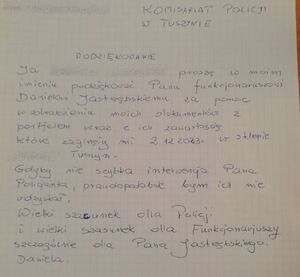 KOMISARIAT POLICJI
W TUSZYNIE
PODZIĘKOWANIE
Ja proszę w moim
imieniu podziękować Panu funkcjonariuszowi
Danielowi Jastrzębskiemu za pomoc
w odnalezieniu moich dokumentów z
portfelem wraz z ich zawartością
które zaginęły mi 2.12.2023 w sklepie
Tuszyn.
Gdyby nie szybka interwencja Pana
Policjanta, prawdopodobnie bym ich nie
odzyskał.
Wielki szacunek dla Policji
i wielki szacunek dla Funkcjonariuszy
szczególnie dla Pana Jastrzębskiego.
Daniela.